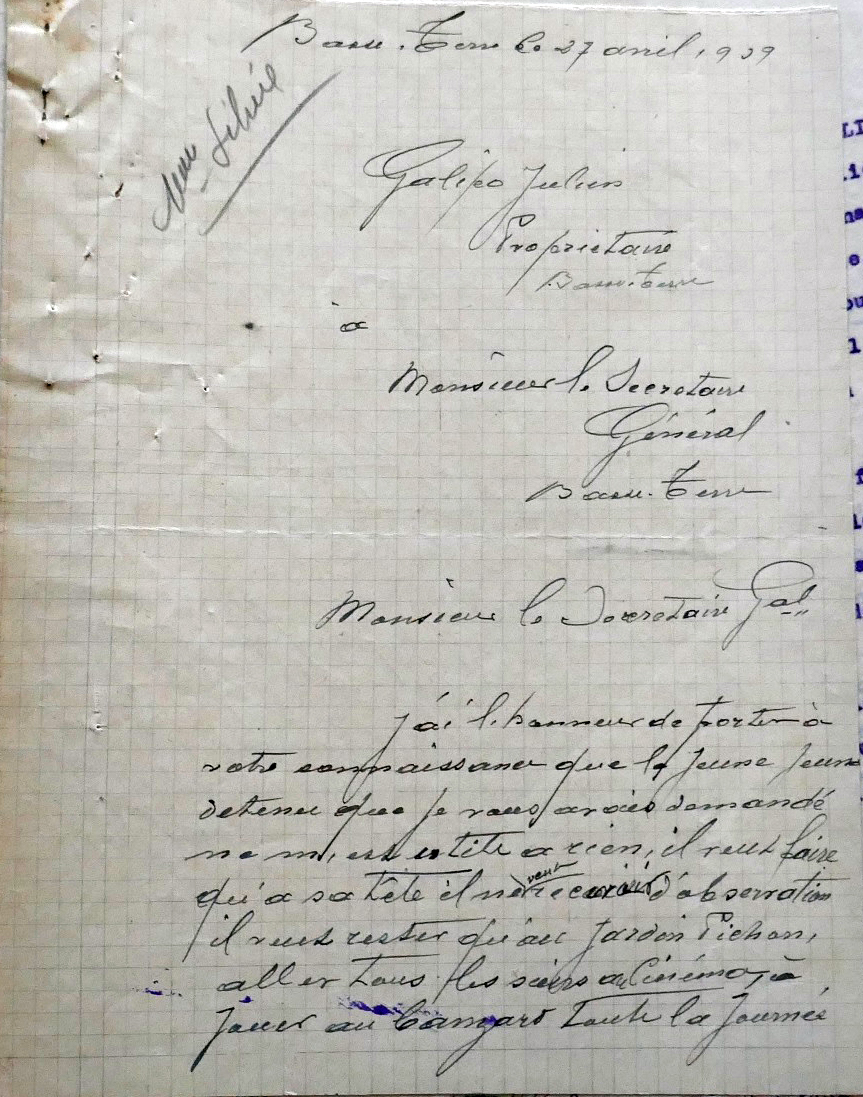 Basse-Terre le 27 avril 1939
Galipo Julien
Propriétaire
Basse-Terre
à
Monsieur le Secretaire
Général
Basse-Terre
Monsieur le Secretaire Gal
J'ai l'honneur de porter à
votre connaissance que le jeune jeune
detenu que je vous avais demandé
ne m'est utile a rien, il veut faire
qu'a sa tête il ne veut d'observation
il veut rester qu'au Jardin Pichon,
aller tous les soirs au Cinéma, à
jouer au toute la journée